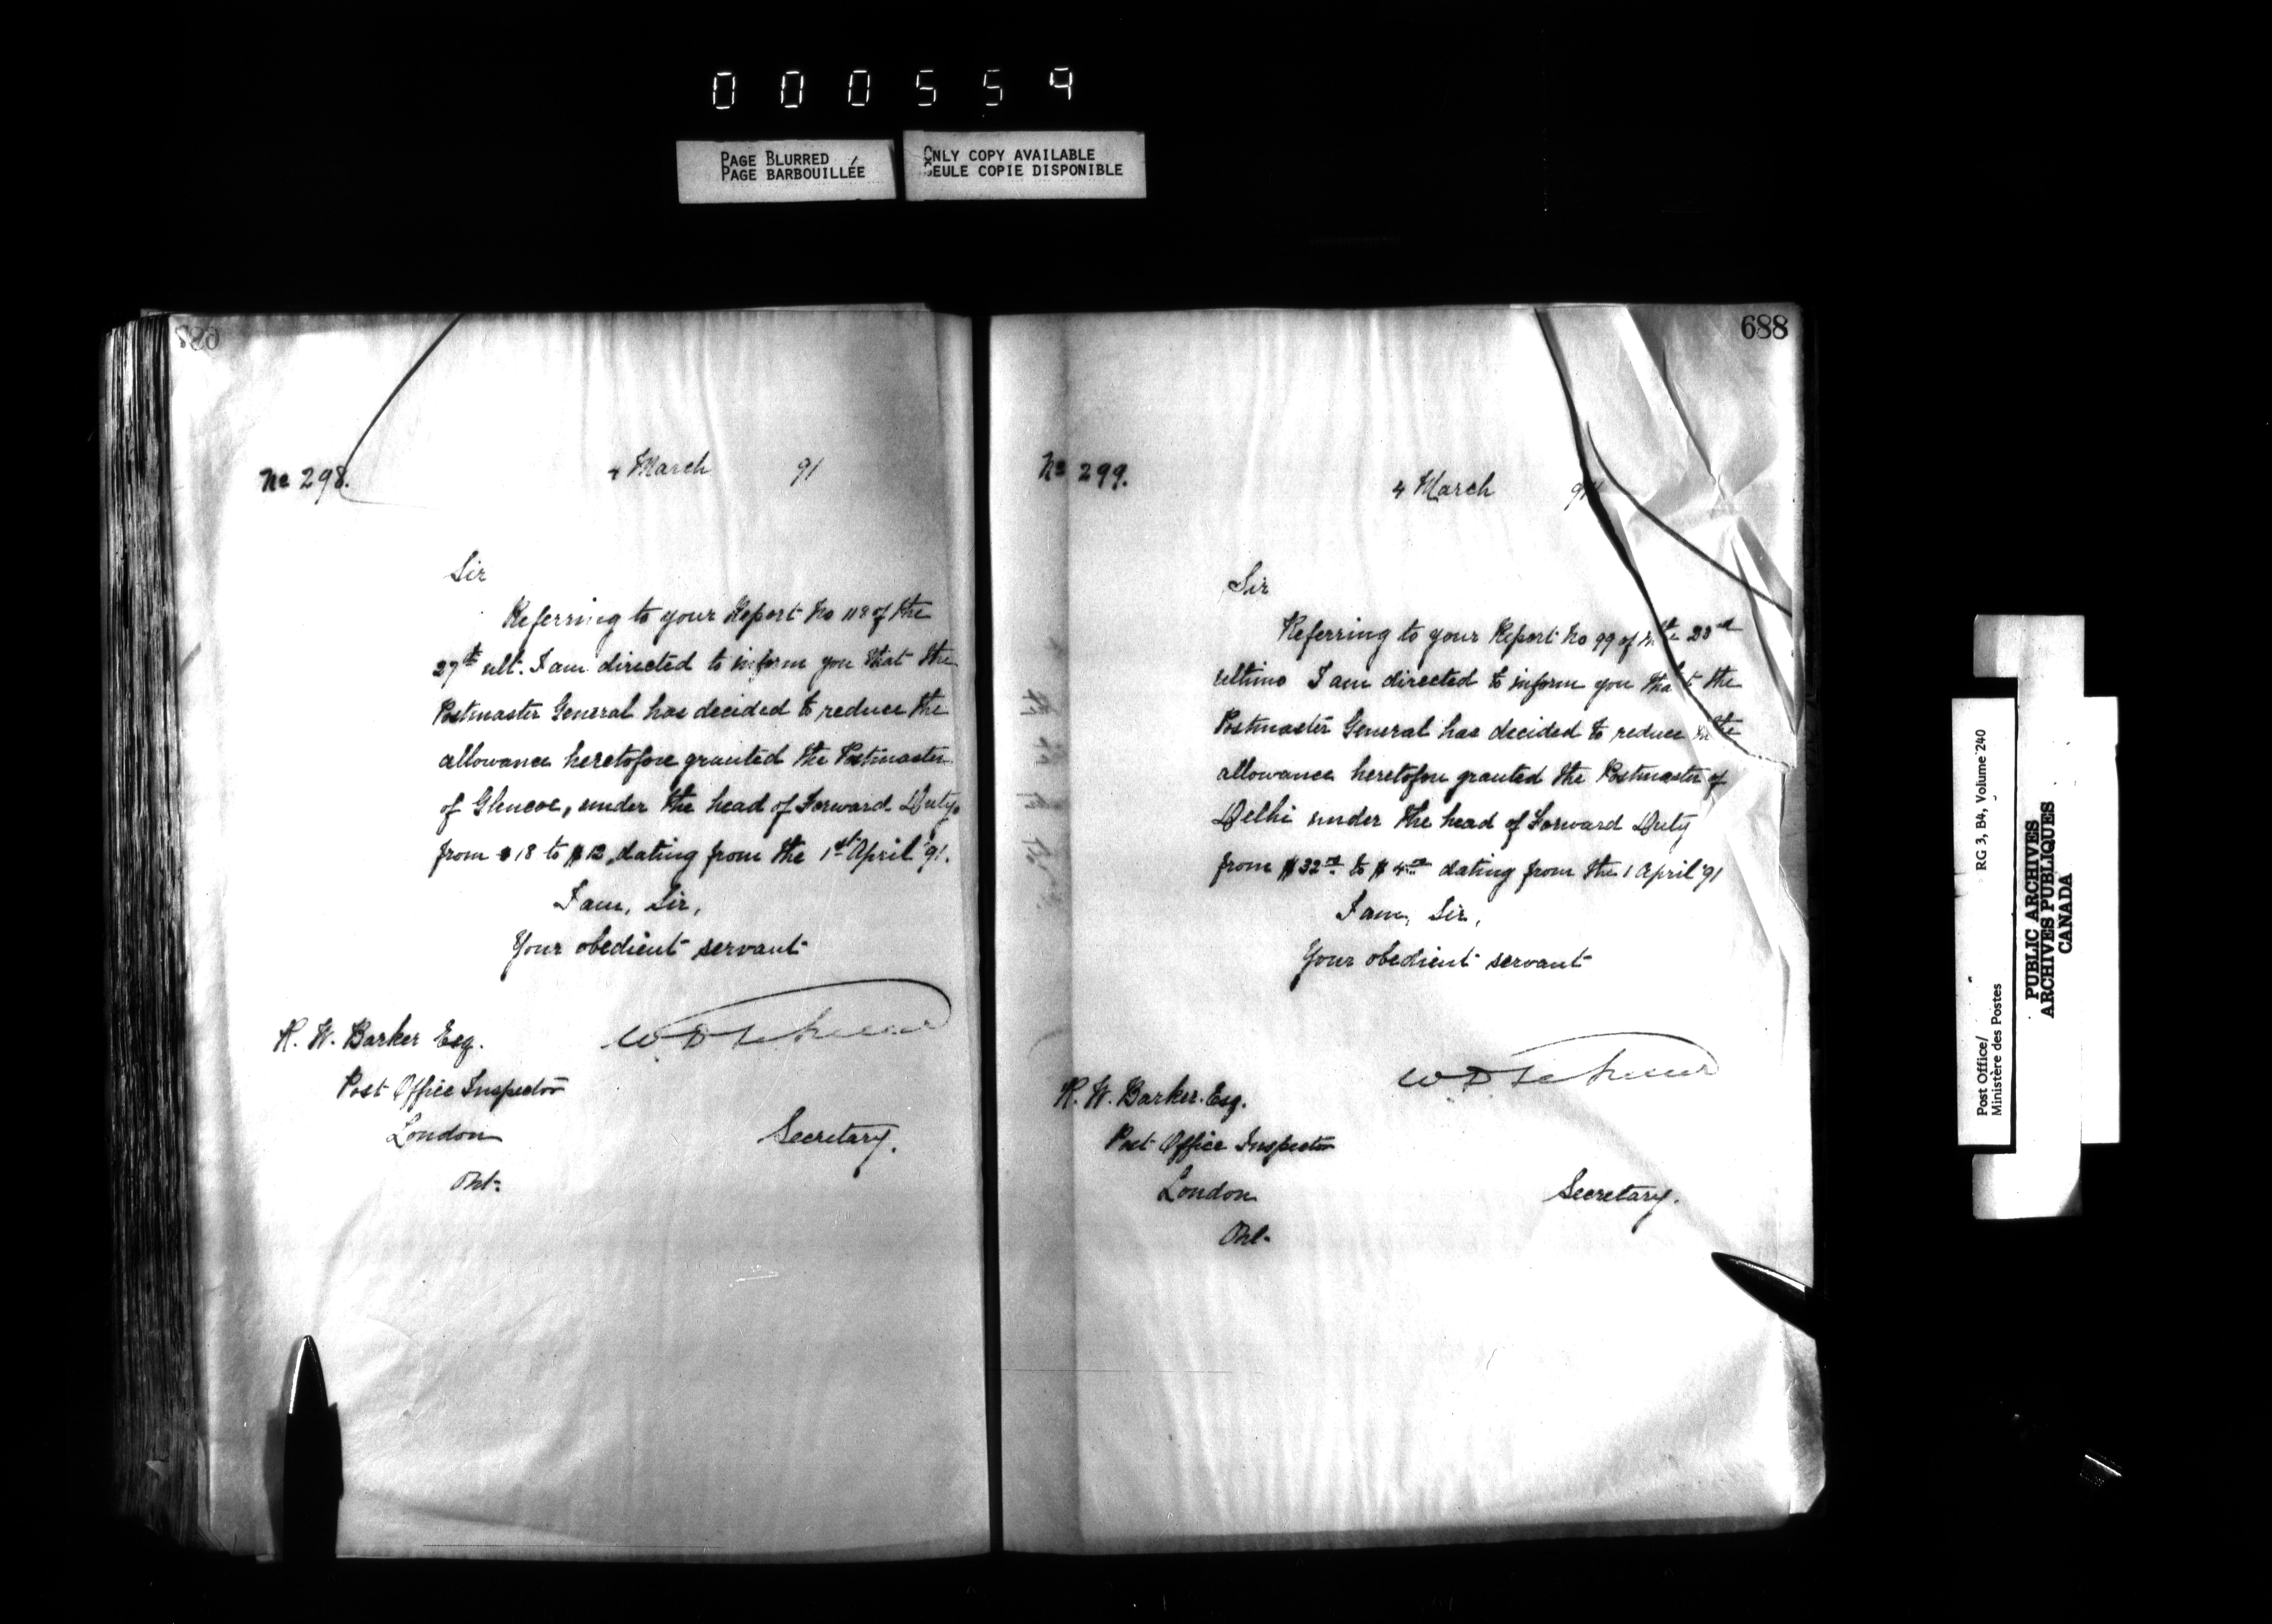 000559
PAGE BLURRED
PAGE BARBOUILLÉE
ONLY COPY AVAILABLE
SEULE COPIE DISPONIBLE
No 298.
4 March 91
Sir
Referring to your Report No 118 of the
27th ult. I am directed to inform you that the
Postmaster General has decided to reduce the
allowance heretofore granted the Postmaster
of Glencoe, under the head of Forward Duty,
from $18 to $12, dating from the 1st April '91.
I am, Sir,
Your obedient servant
R. W. Barker Esq.
Post Office Inspector
London
Ont.
Secretary.
688
No 299.
4 March 91
Sir
Referring to your Report No 99 of the 23rd
ultimo I am directed to inform you that the
Postmaster General has decided to reduce the
allowance heretofore granted the Postmaster of
Delhi under the head of Forward Duty
from $32.00 to $4.00 dating from the 1 April '91
I am, Sir,
Your obedient servant
R. W. Barker. Esq.
Post Office Inspector
London
Ont.
Secretary.
Post Office/
Ministère des Postes
RG 3, B4, Volume 240
PUBLIC ARCHIVES
ARCHIVES PUBLIQUES
CANADA